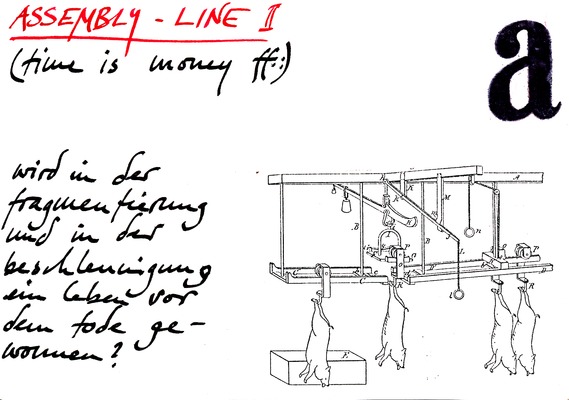 ASSEMBLY - LINE II
(time is money ff:)
a
wird in der
fragmentierung
und in der
beschleunigung
ein leben vor
dem tode ge-
wonnen?